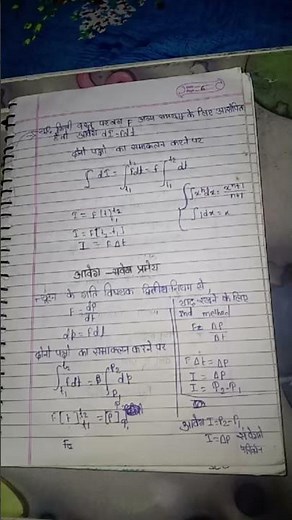 यदि किसी वस्तु पर बल F अल्प समय dt के लिए आरोपित
हो तो आवेग dI = Fdt
दोनों पक्षों का समाकलन करने पर
∫ dI = ∫_{t₁}^{t₂} Fdt = F ∫_{t₁}^{t₂} dt
∫xⁿdx = xⁿ⁺¹/n+1
∫1dx = x
I = F[t]_{t₁}^{t₂}
I = F[t₂-t₁]
I = FΔt
आवेग - संवेग प्रमेय
न्यूटन के गति विषयक द्वितीय नियम से,
F = dp/dt
dp = Fdt
दोनों पक्षों का समाकलन करने पर
∫_{t₁}^{t₂} Fdt = ∫_{P₁}^{P₂} dp
F[t]_{t₁}^{t₂} = [P]
याद रखने के लिए
IInd method
F = ΔP/Δt
FΔt = ΔP
I = ΔP
I = P₂-P₁
आवेग I = P₂-P₁
I = ΔP संवेग में
परिवर्तन